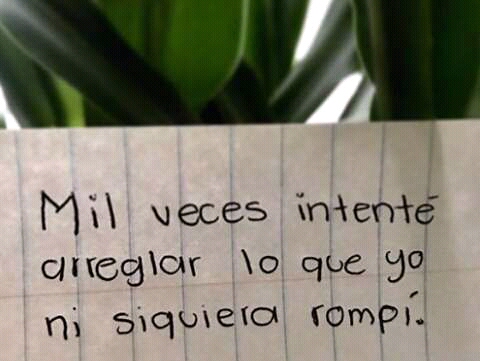 Mil veces intenté
arreglar lo que yo
ni siquiera rompí.